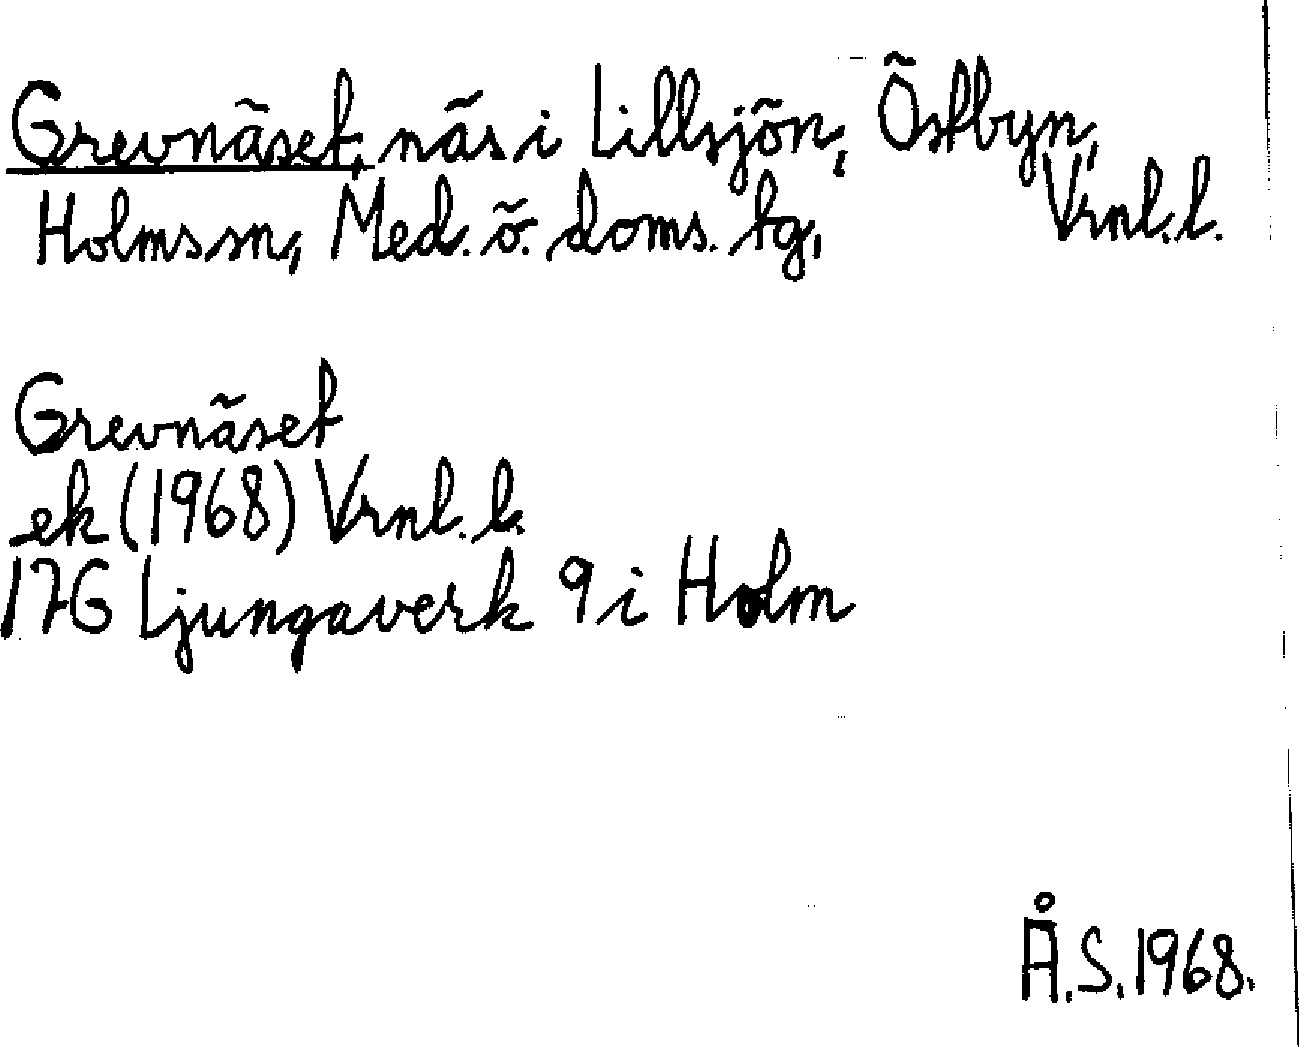 Grevnäset, näs i Lillsjön, Östbyn,
Holms sn, Med. ö. doms. tg, Vrnl. l.
Grevnäset
ek (1968) Vrnl. l.
17G Ljungaverk 9 i Holm
Å.S. 1968.